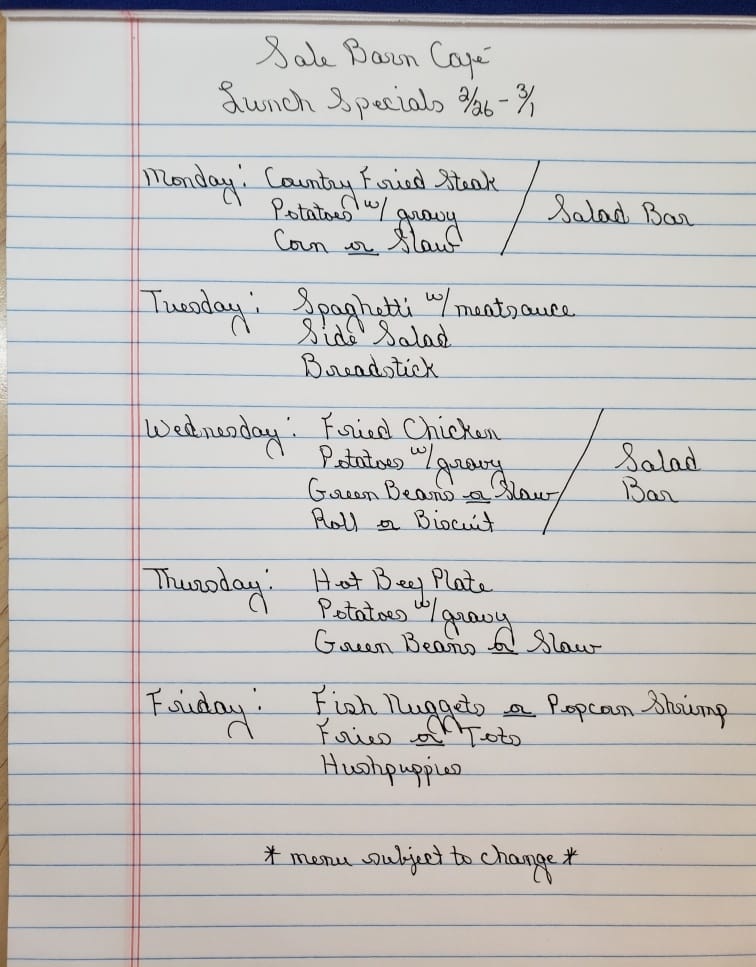 Sale Barn Café
Lunch Specials 2/26 - 3/1
Monday: Country Fried Steak
Potatoes w/ gravy / Salad Bar
Corn or Slaw
Tuesday: Spaghetti w/ meatsauce
Side Salad
Breadstick
Wednesday: Fried Chicken
Potatoes w/ gravy / Salad
Green Beans or Slaw Bar
Roll or Biscuit
Thursday: Hot Beef Plate
Potatoes w/ gravy
Green Beans or Slaw
Friday: Fish Nuggets or Popcorn Shrimp
Fries or Tots
Hushpuppies
* menu subject to change *